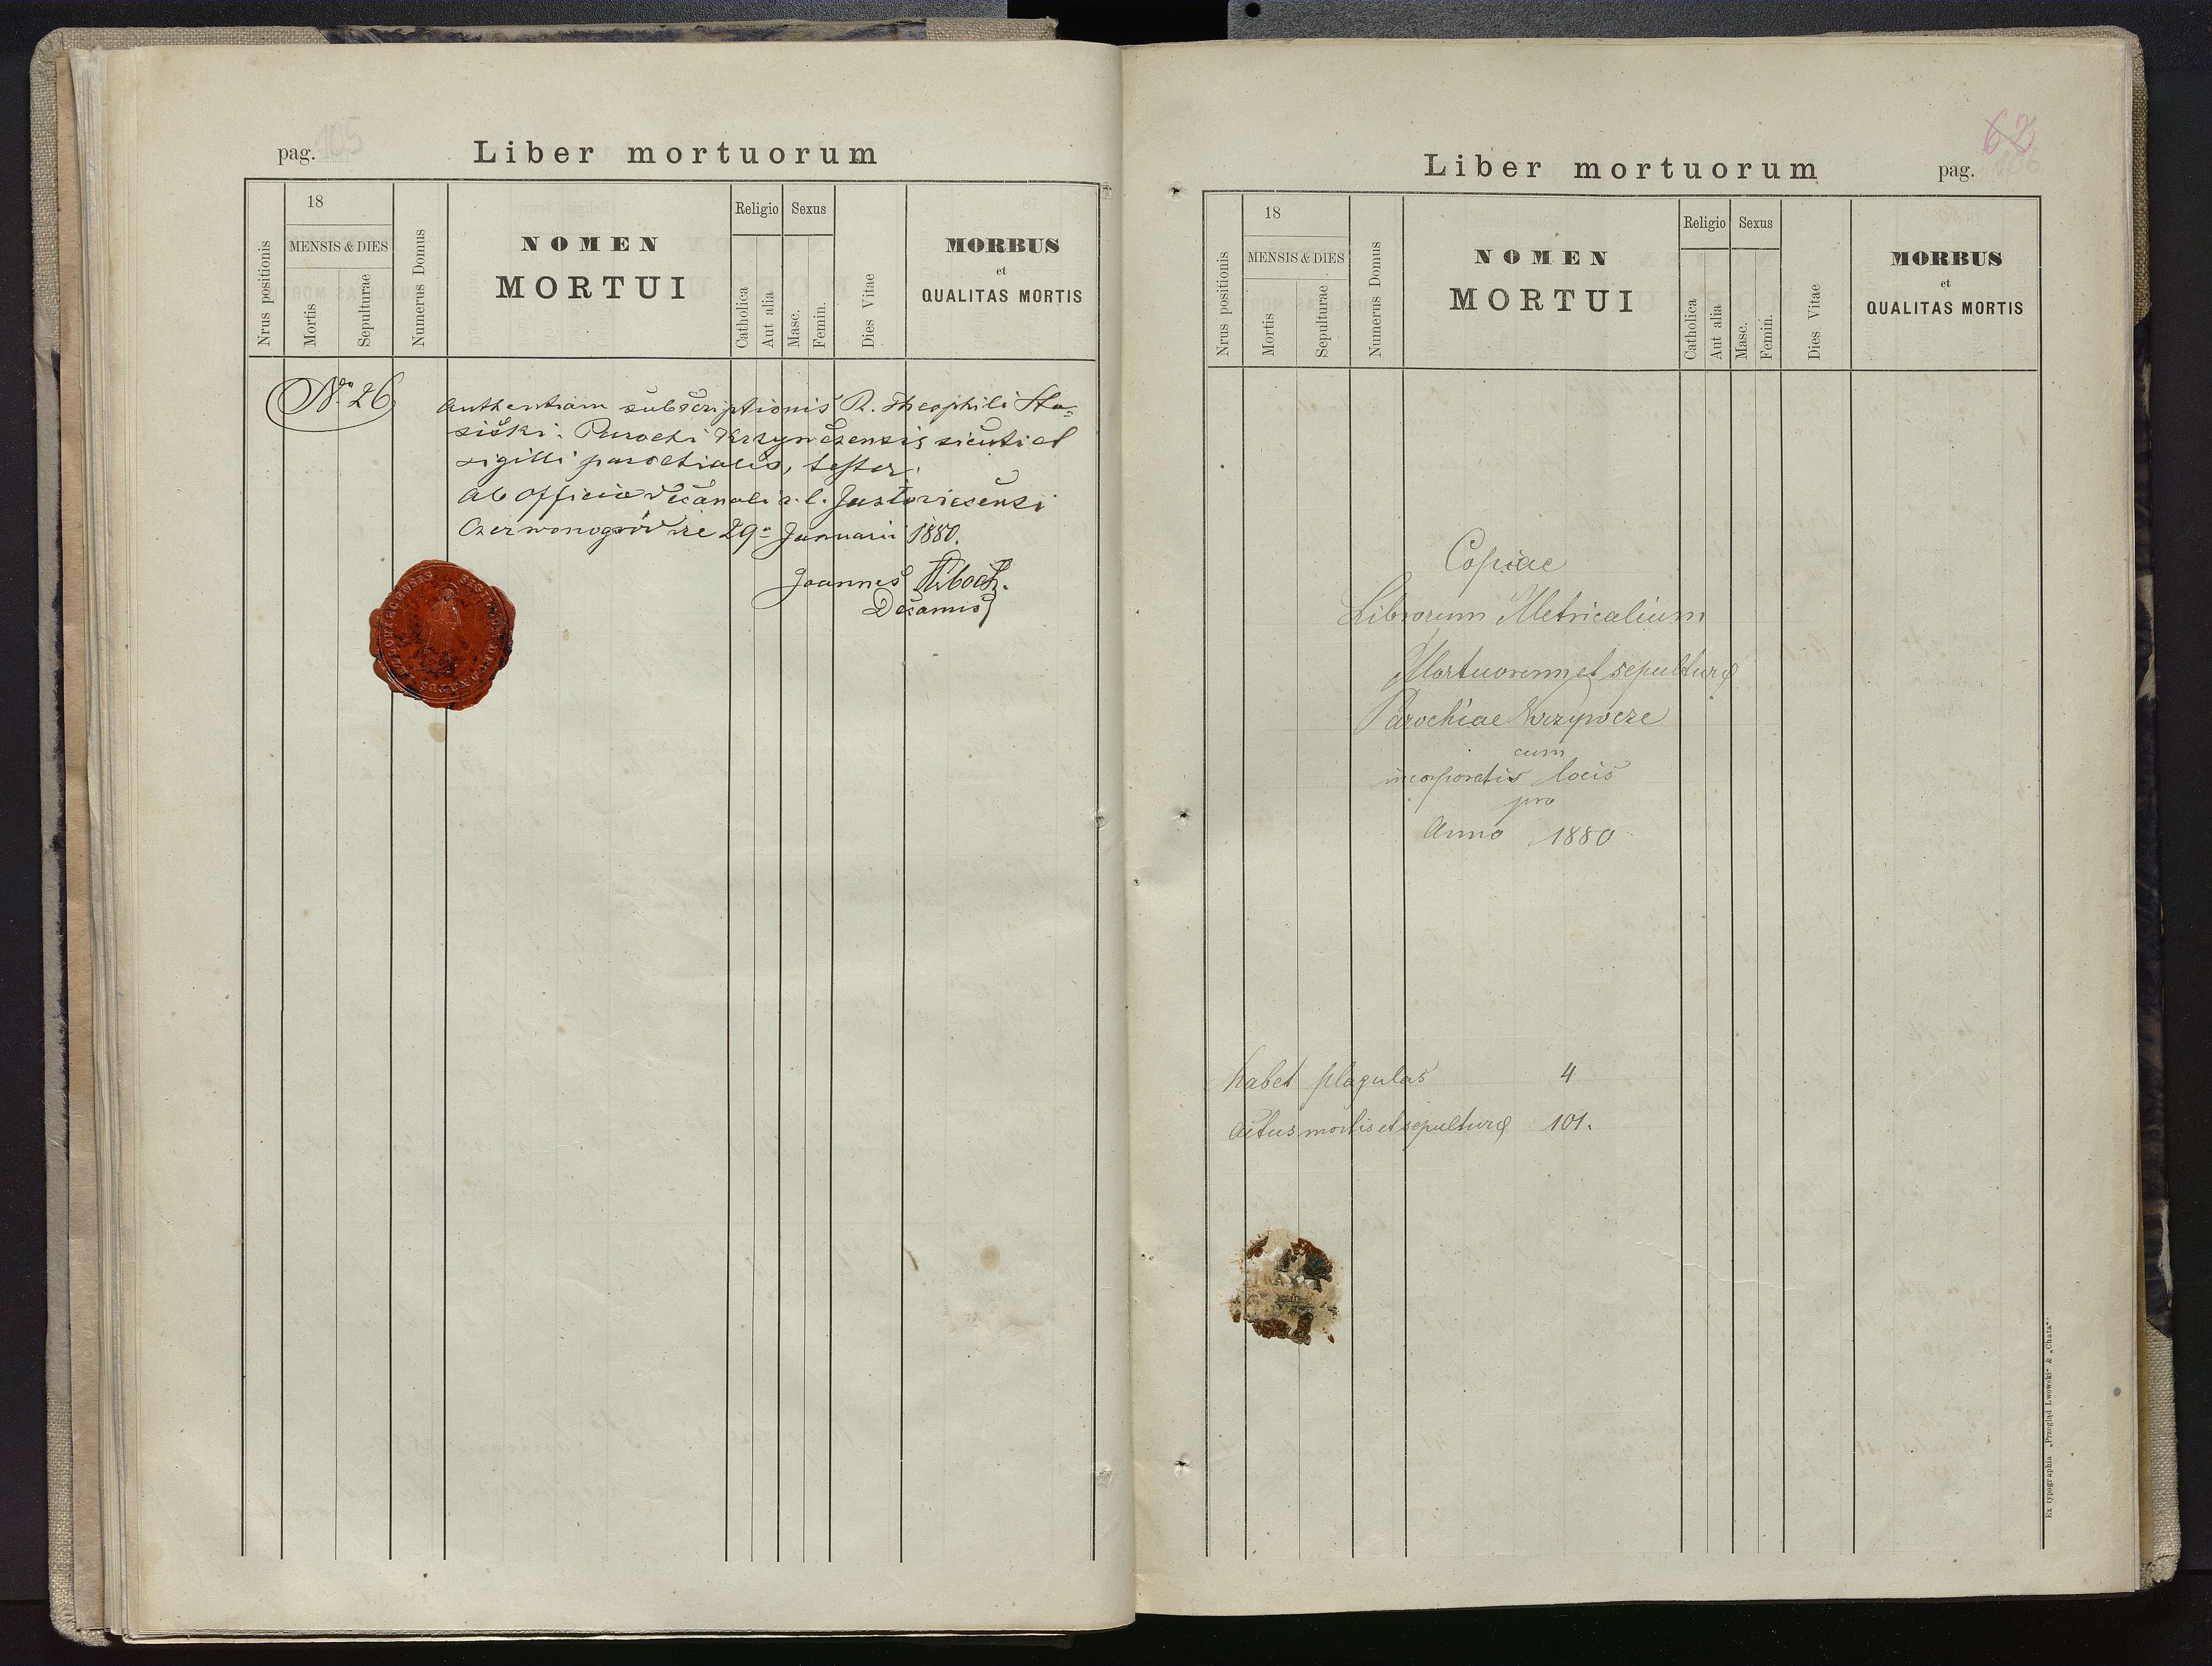 pag. 105
Liber mortuorum
Nrus positionis
18
MENSIS & DIES
Mortis
Sepulturae
Numerus Domus
NOMEN
MORTUI
Religio
Catholica
Aut alia
Sexus
Masc.
Femin.
Dies Vitae
MORBUS
et
QUALITAS MORTIS
No 26
Authentiam subscriptionis R. Theophili Sta=
siski. Parochi Krzywczensis sicuti et
sigilli parochialis, testor.
Ab Officio Decanali r. l.
29a Januarii 1880.
Joannes
Decanus
Liber mortuorum
pag. 106
62
Nrus positionis
18
MENSIS & DIES
Mortis
Sepulturae
Numerus Domus
NOMEN
MORTUI
Religio
Catholica
Aut alia
Sexus
Masc.
Femin.
Dies Vitae
MORBUS
et
QUALITAS MORTIS
Copiae
Librorum Metricalium
Mortuorum et sepulturę
Parochiae Krzywcze
cum
incorporatis locis
pro
Anno 1880
habet plagulas 4
Actus mortis et sepulturę 101.
Ex typographia „Przegląd Lwowski" & „Chata".